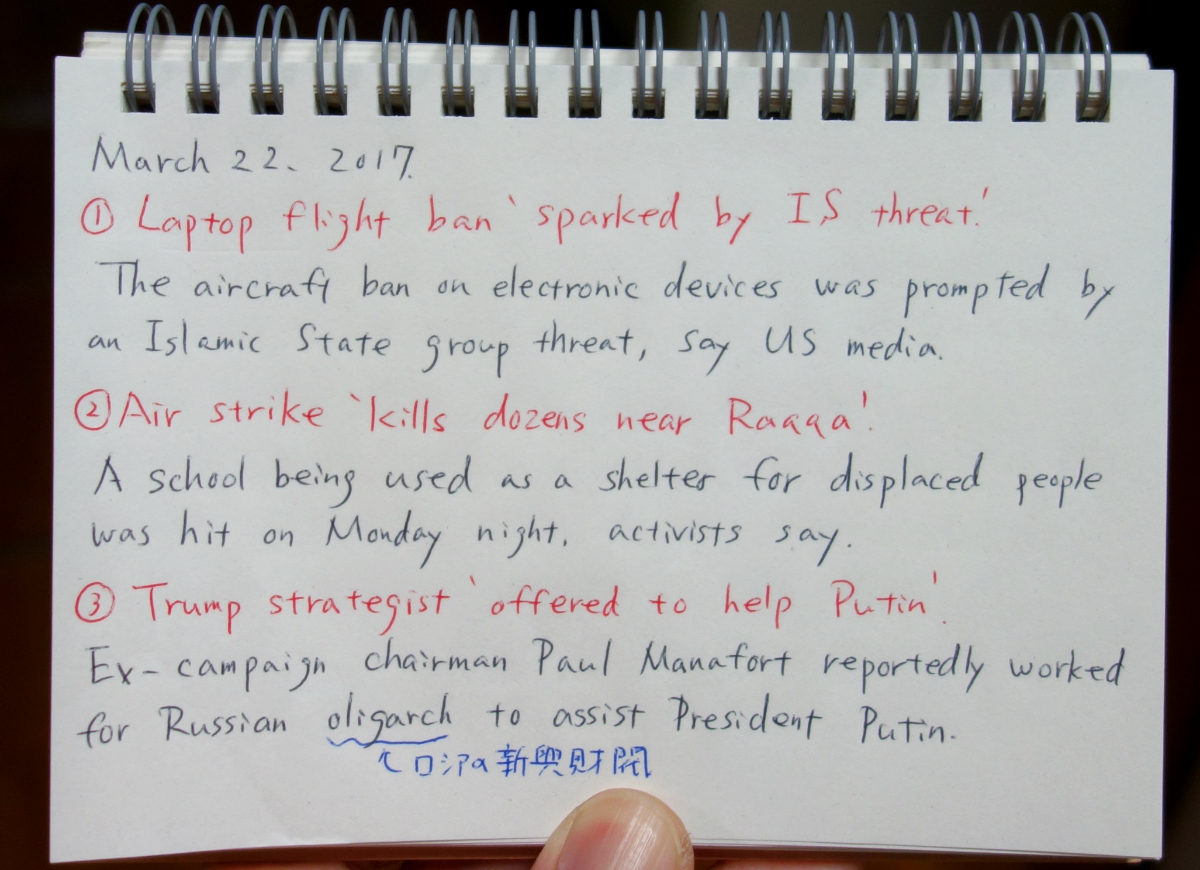 March 22、2017.
① Laptop flight ban 'sparked by IS threat.'
The aircraft ban on electronic devices was prompted by
an Islamic State group threat, say US media.
② Air strike 'kills dozens near Raqqa'.
A school being used as a shelter for displaced people
was hit on Monday night, activists say.
③ Trump strategist 'offered to help Putin'.
Ex-campaign chairman Paul Manafort reportedly worked
for Russian oligarch to assist President Putin.
↖ロシアの新興財閥